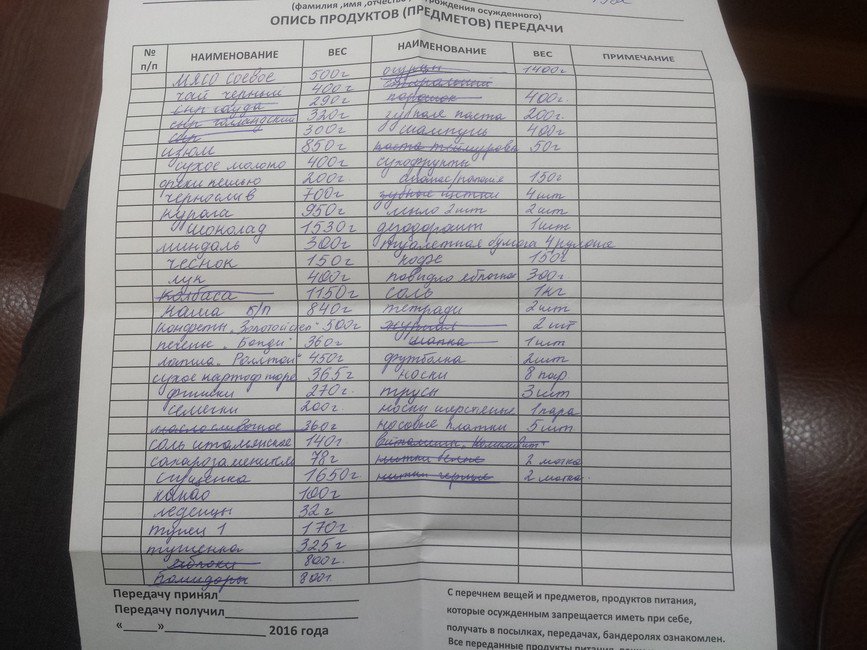 (фамилия ,имя ,отчество, рождения осужденного)
ОПИСЬ ПРОДУКТОВ (ПРЕДМЕТОВ) ПЕРЕДАЧИ
№ п/п НАИМЕНОВАНИЕ ВЕС НАИМЕНОВАНИЕ ВЕС ПРИМЕЧАНИЕ
мясо соевое 500г огурцы 1400г
чай черный 400г стиральный
сыр гауда 290г порошок 400г
сыр голландский 320г зубная паста 200г
сыр 300г шампунь 400г
изюм 850г 50г
сухое молоко 400г сухофрукты
орехи кешью 200г ананас/папайя 150г
чернослив 700г зубные щетки 4шт
курага 950г мыло 2шт 2шт
шоколад 1530г дезодорант 1шт
миндаль 300г туалетная бумага 4 рулона
чеснок 150г кофе 150г
лук 400г повидло яблочное 300г
колбаса 1150г соль 1кг
каша б/п 840г тетради 2шт
конфеты 500г журнал 2шт
печенье "Бонди" 360г шапка 1шт
лапша "Роллтон" 450г футболка 2шт
сухое картоф пюре 365г носки 8 пар
финики 270г. трусы 3шт
семечки 200г носки шерстяные 1 пара
масло сливочное 360г носовые платки 5шт
соль итальянское 140г витамины
сахарозаменитель 78г нитки белые 2 мотка
сгущенка 1650г нитки черные 2 мотка.
какао 100г
леденцы 32г
тунец 1 170г
тушенка 325г
яблоки 800г
помидоры 800г
Передачу принял
Передачу получил
«___»______________ 2016 года
С перечнем вещей и предметов, продуктов питания,
которые осужденным запрещается иметь при себе,
получать в посылках, передачах, бандеролях ознакомлен.
Все переданные продукты питания,